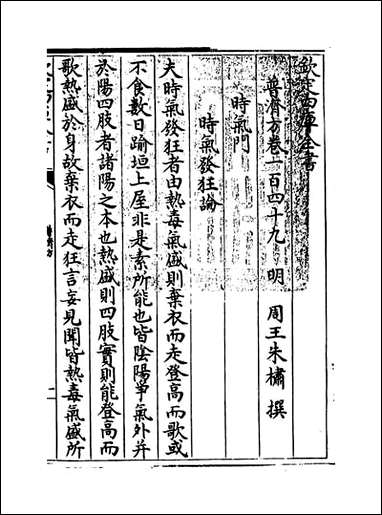 欽定四庫全書
普濟方卷一百四十九 明 周王朱橚 撰
時氣門
時氣發狂論
夫時氣發狂者由熱毒氣盛則棄衣而走登高而歌或
不食數日踰垣上屋非是素所能也皆陰陽爭氣外并
於陽四肢者諸陽之本也熱盛則四肢實實則能登高而
歌熱盛於身故棄衣而走狂言妄見聞皆熱毒氣盛所
普濟方